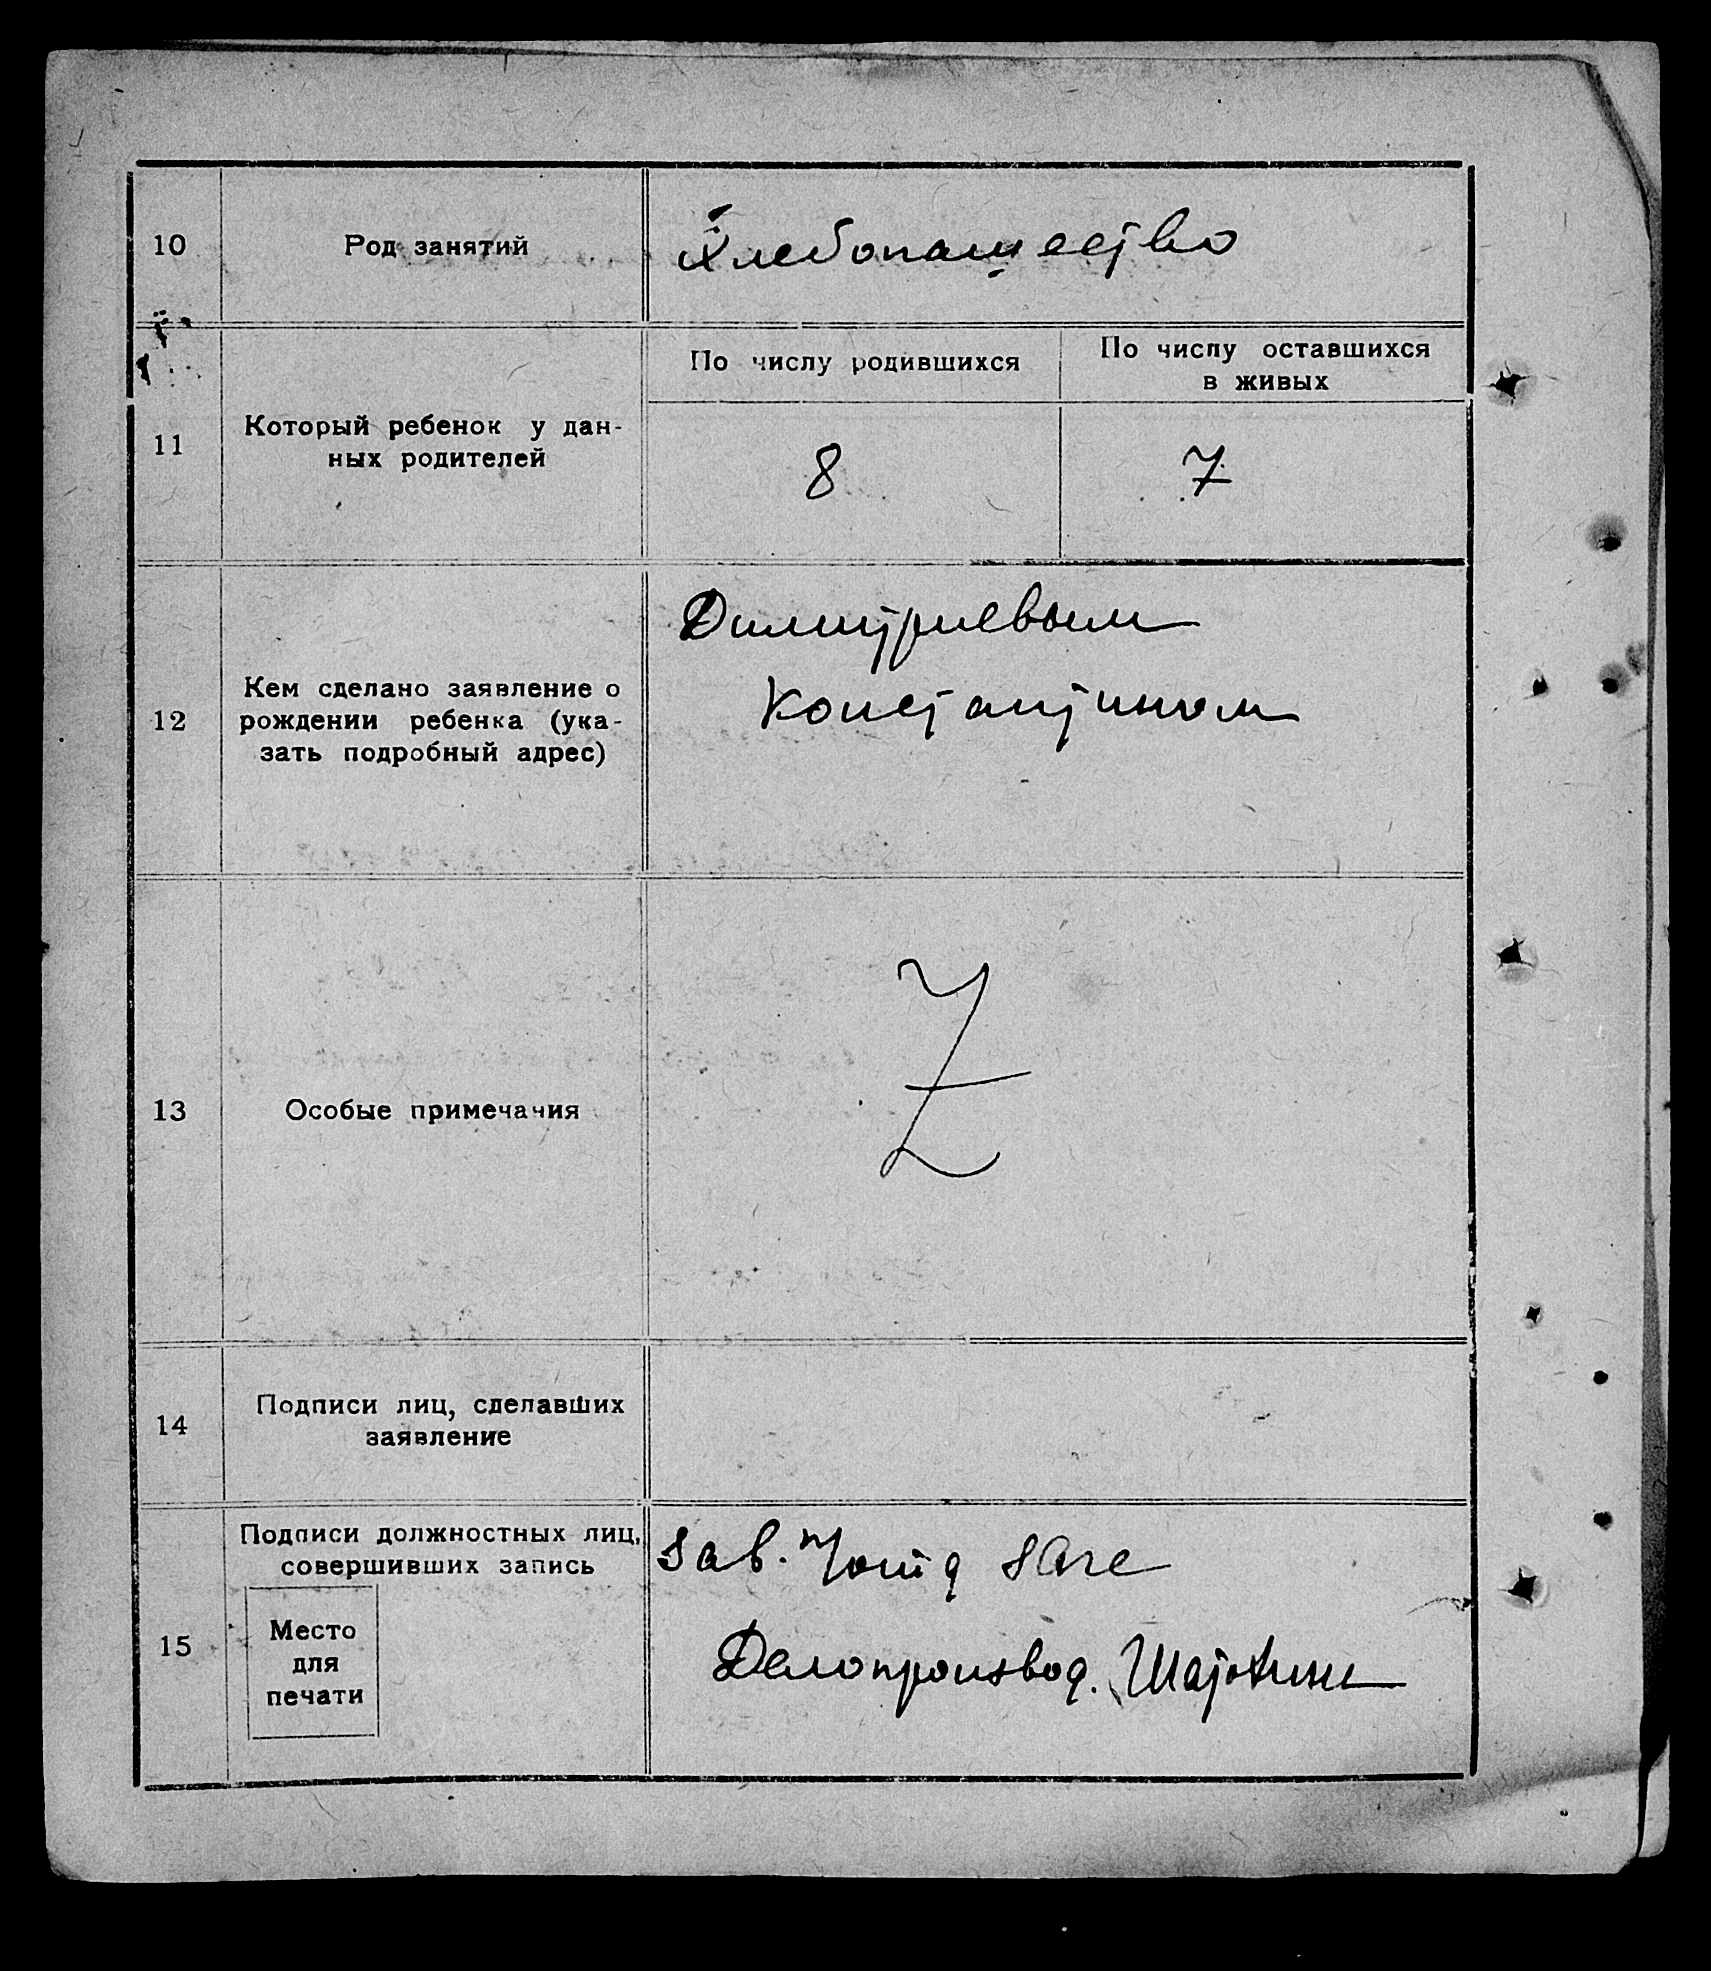 10
Род занятий
Хлебопашество
11
Который ребенок у дан-
ных родителей
По числу родившихся
По числу оставшихся
в живых
8
7
12
Кем сделано заявление о
рождении ребенка (ука-
зать подробный адрес)
Димитриевым
Константином
13
Особые примечания
Z
14
Подписи лиц, сделавших
заявление
15
Подписи должностных лиц,
совершивших запись
Место
для
печати
Зав.
Делопроизвод.